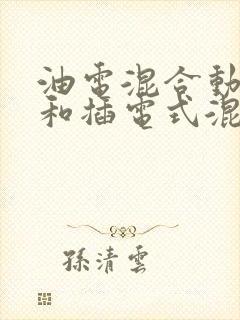 油電混合動
和插電式混
孫清雲